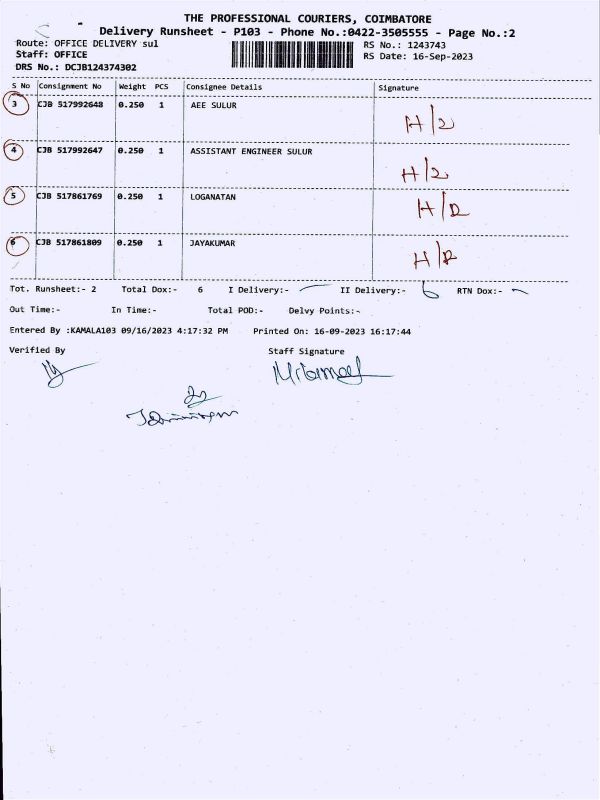 THE PROFESSIONAL COURIERS, COIMBATORE
Delivery Runsheet - P103 - Phone No.:0422-3505555 - Page No.:2
Route: OFFICE DELIVERY sul RS No.: 1243743
Staff: OFFICE RS Date: 16-Sep-2023
DRS No.: DCJB124374302
S No Consignment No Weight PCS Consignee Details Signature
3 CJB 517992648 0.250 1 AEE SULUR
4 CJB 517992647 0.250 1 ASSISTANT ENGINEER SULUR
5 CJB 517861769 0.250 1 LOGANATAN
6 CJB 517861809 0.250 1 JAYAKUMAR
Tot. Runsheet:- 2 Total Dox:- 6 I Delivery:- II Delivery:- 6 RTN Dox:-
Out Time:- In Time:- Total POD:- Delvy Points:-
Entered By :KAMALA103 09/16/2023 4:17:32 PM Printed On: 16-09-2023 16:17:44
Verified By Staff Signature